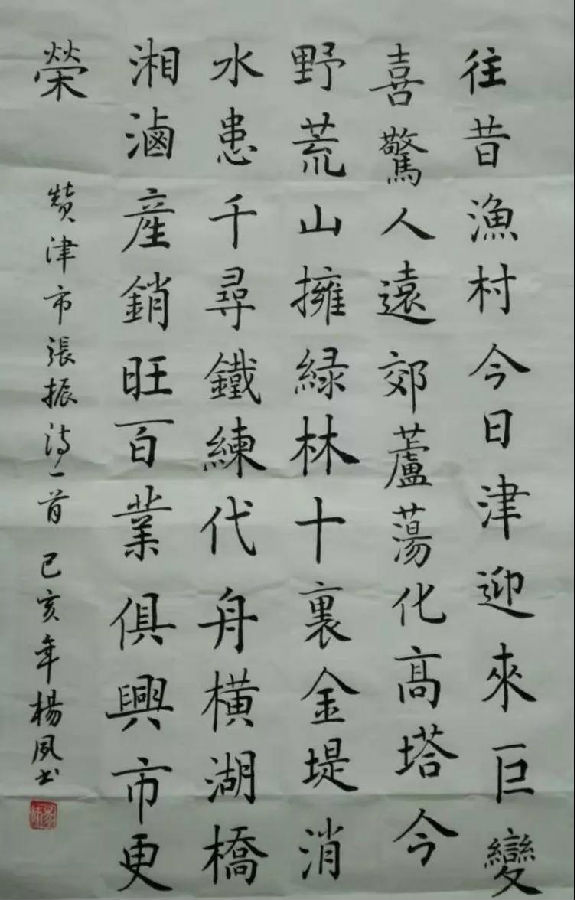 往昔漁村今日津迎來巨變
喜驚人遠郊蘆蕩化高塔今
野荒山擁緑林十裏金堤消
水患千尋鐵練代舟横湖橋
湘滷產銷旺百業俱興市更
榮
贊津市張振詩一首 己亥年楊風书